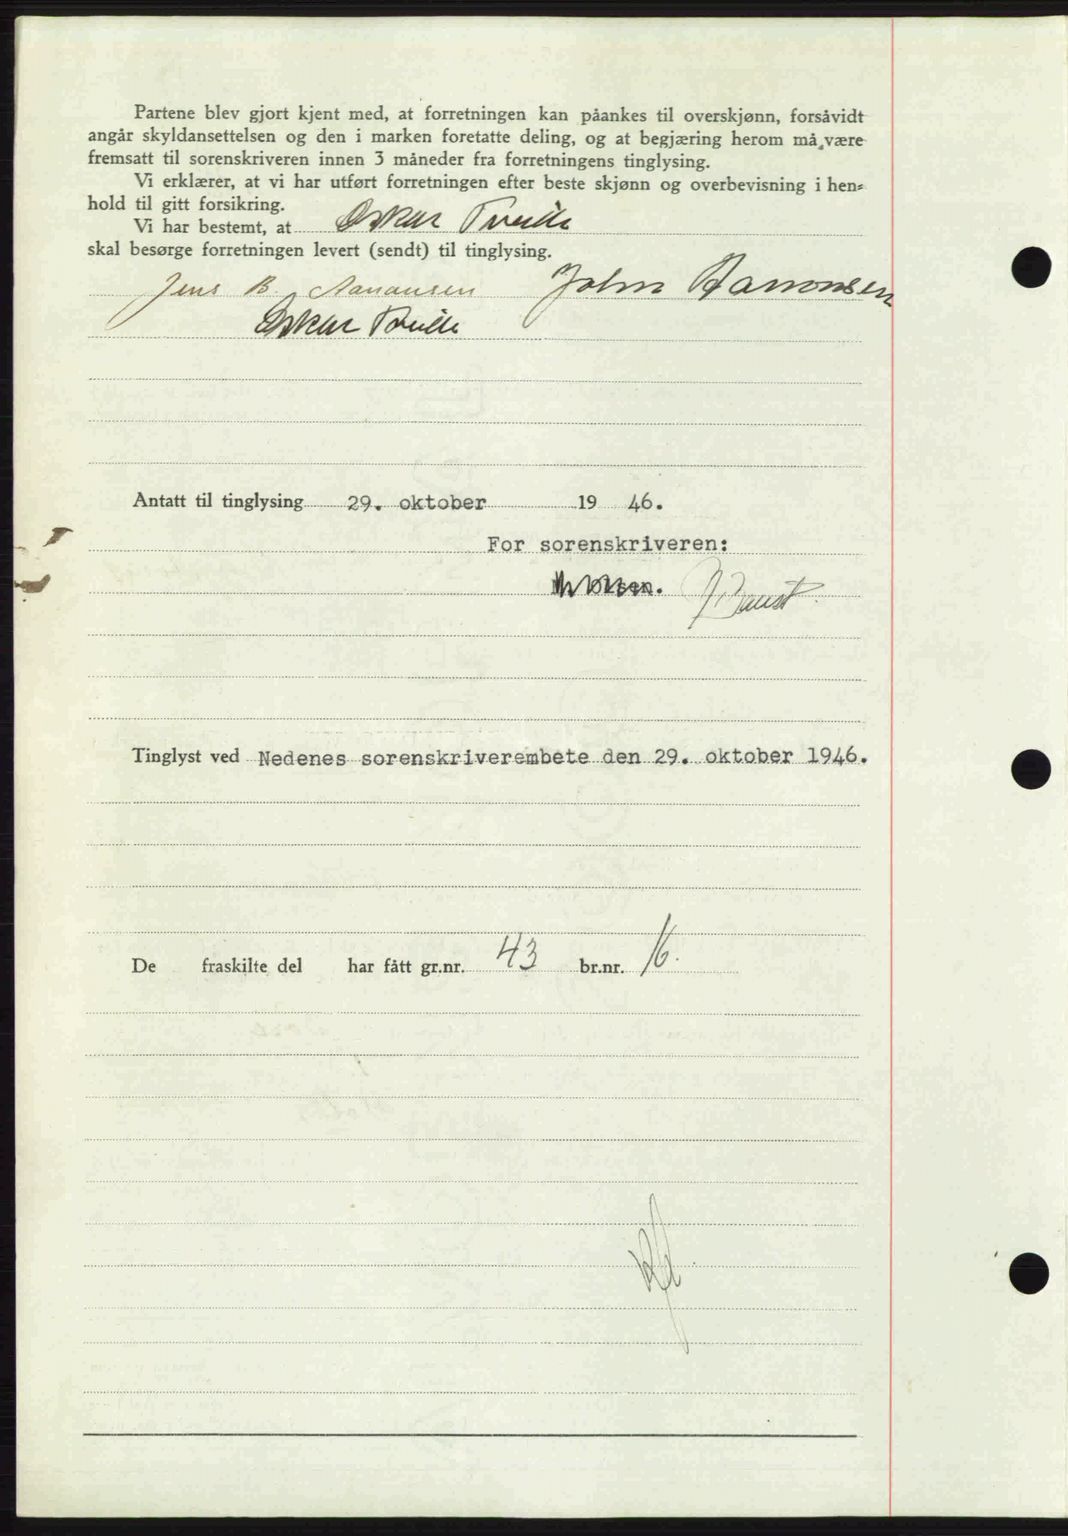 Partene blev gjort kjent med, at forretningen kan påankes til overskjønn, forsåvidt
angår skyldansettelsen og den i marken foretatte deling, og at begjæring herom må være
fremsatt til sorenskriveren innen 3 måneder fra forretningens tinglysing.
Vi erklærer, at vi har utført forretningen efter beste skjønn og overbevisning i hen=
hold til gitt forsikring.
Vi har bestemt, at Oskar Tveide
skal besørge forretningen levert (sendt) til tinglysing.
Jens B. Aanansen John Aanonsen
Oskar Tveide
Antatt til tinglysing 29. oktober 19 46.
For sorenskriveren:
Tinglyst ved Nedenes sorenskriverembete den 29. oktober 1946.
De fraskilte del har fått gr.nr. 43 br.nr. 16.